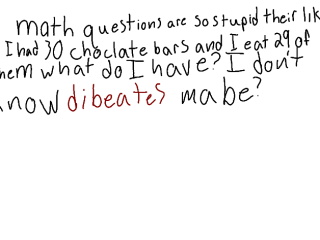 math questions are so stupid their lik
I had 30 choclate bars and I eat 29 of
hem what do I have? I don't
now dibeates mabe?